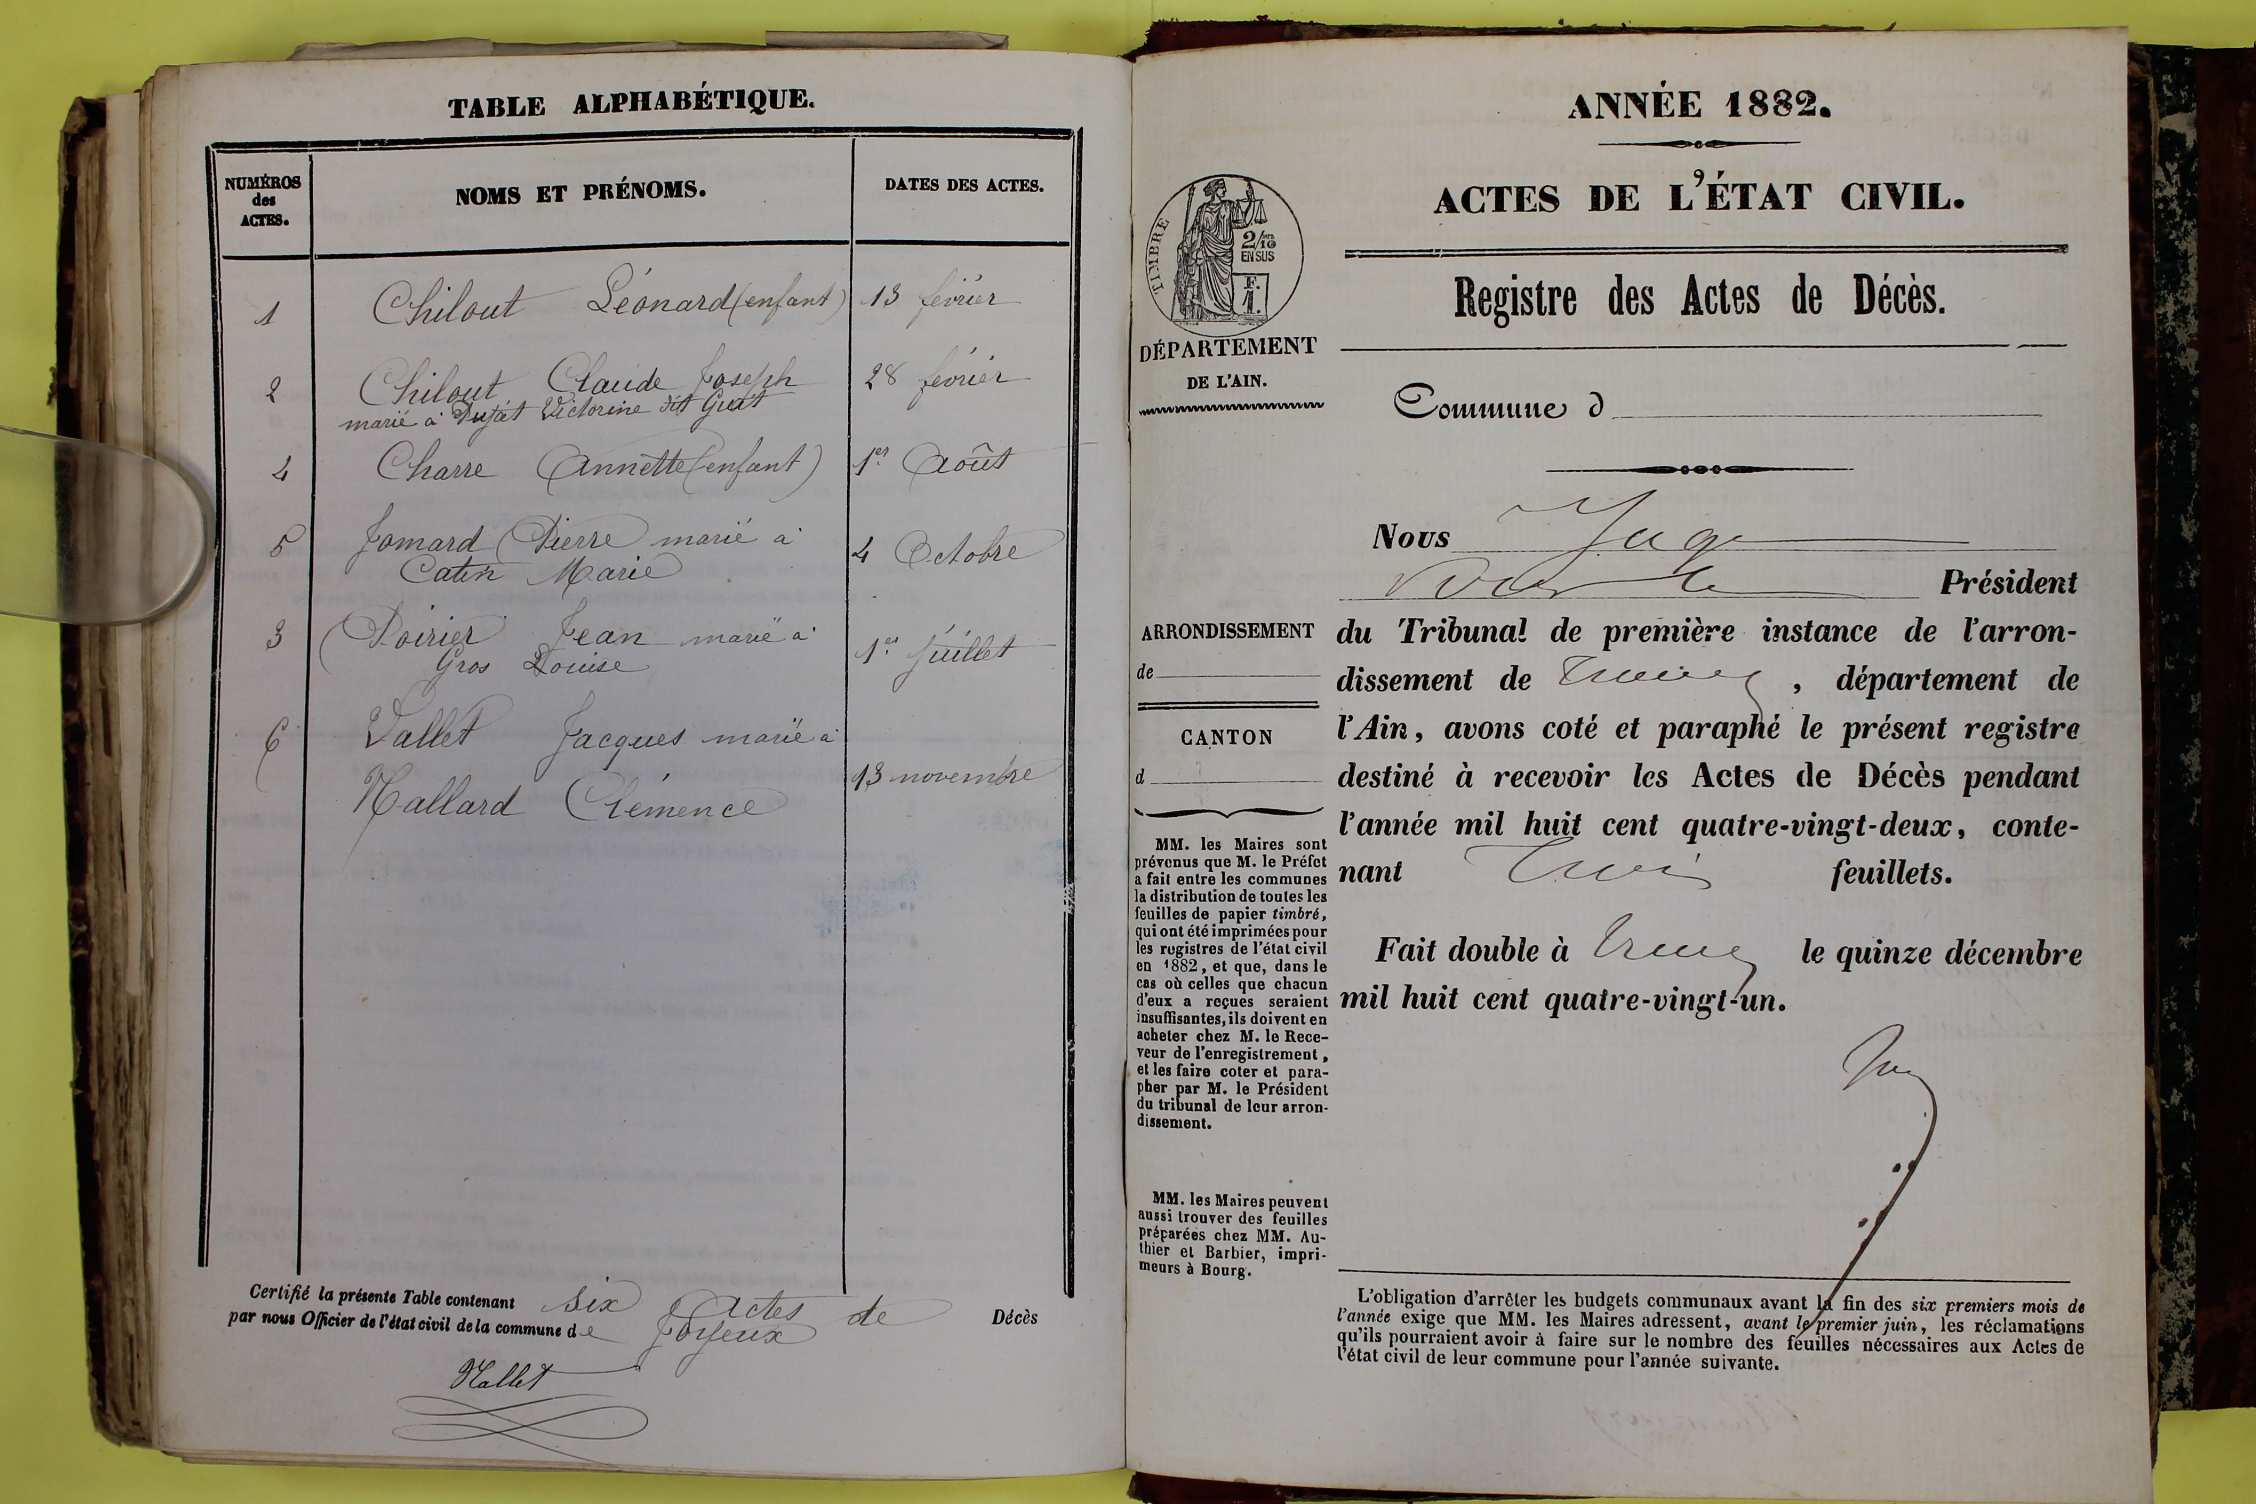 TABLE ALPHABÉTIQUE.
NUMÉROS
des
ACTES.
NOMS ET PRÉNOMS.
DATES DES ACTES.
1 Chilout Léonard (enfant) 13 février
2 Chilout Claude Joseph 28 février
marié à Victorine dit
4 Charre Annette (enfant) 1er Août
5 Jomard Pierre marié à 4 Octobre
Catin Marie
3 Poirier Jean marié à 1er Juillet
Gros Louise
6 Vallet Jacques marié à
Mallard Clémence 13 novembre
Certifié la présente Table contenant six actes de Décès
par nous Officier de l'état civil de la commune de Joyeux
Mallet
ANNÉE 1882.
ACTES DE L'ÉTAT CIVIL.
Registre des Actes de Décès.
TIMBRE
2/10
EN SUS
F.
1.
DÉPARTEMENT
DE L'AIN.
Commune d
ARRONDISSEMENT
de
CANTON
d
MM. les Maires sont
prévenus que M. le Préfet
a fait entre les communes
la distribution de toutes les
feuilles de papier timbré,
qui ont été imprimées pour
les registres de l'état civil
en 1882, et que, dans le
cas où celles que chacun
d'eux a reçues seraient
insuffisantes, ils doivent en
acheter chez M. le Rece-
veur de l'enregistrement,
et les faire coter et para-
pher par M. le Président
du tribunal de leur arron-
dissement.
MM. les Maires peuvent
aussi trouver des feuilles
préparées chez MM. Au-
thier et Barbier, impri-
meurs à Bourg.
Nous Juge
Président
du Tribunal de première instance de l'arron-
dissement de Trévoux, département de
l'Ain, avons coté et paraphé le présent registre
destiné à recevoir les Actes de Décès pendant
l'année mil huit cent quatre-vingt-deux, conte-
nant Trois feuillets.
Fait double à Trévoux le quinze décembre
mil huit cent quatre-vingt-un.
L'obligation d'arrêter les budgets communaux avant la fin des six premiers mois de
l'année exige que MM. les Maires adressent, avant le premier juin, les réclamations
qu'ils pourraient avoir à faire sur le nombre des feuilles nécessaires aux Actes de
l'état civil de leur commune pour l'année suivante.